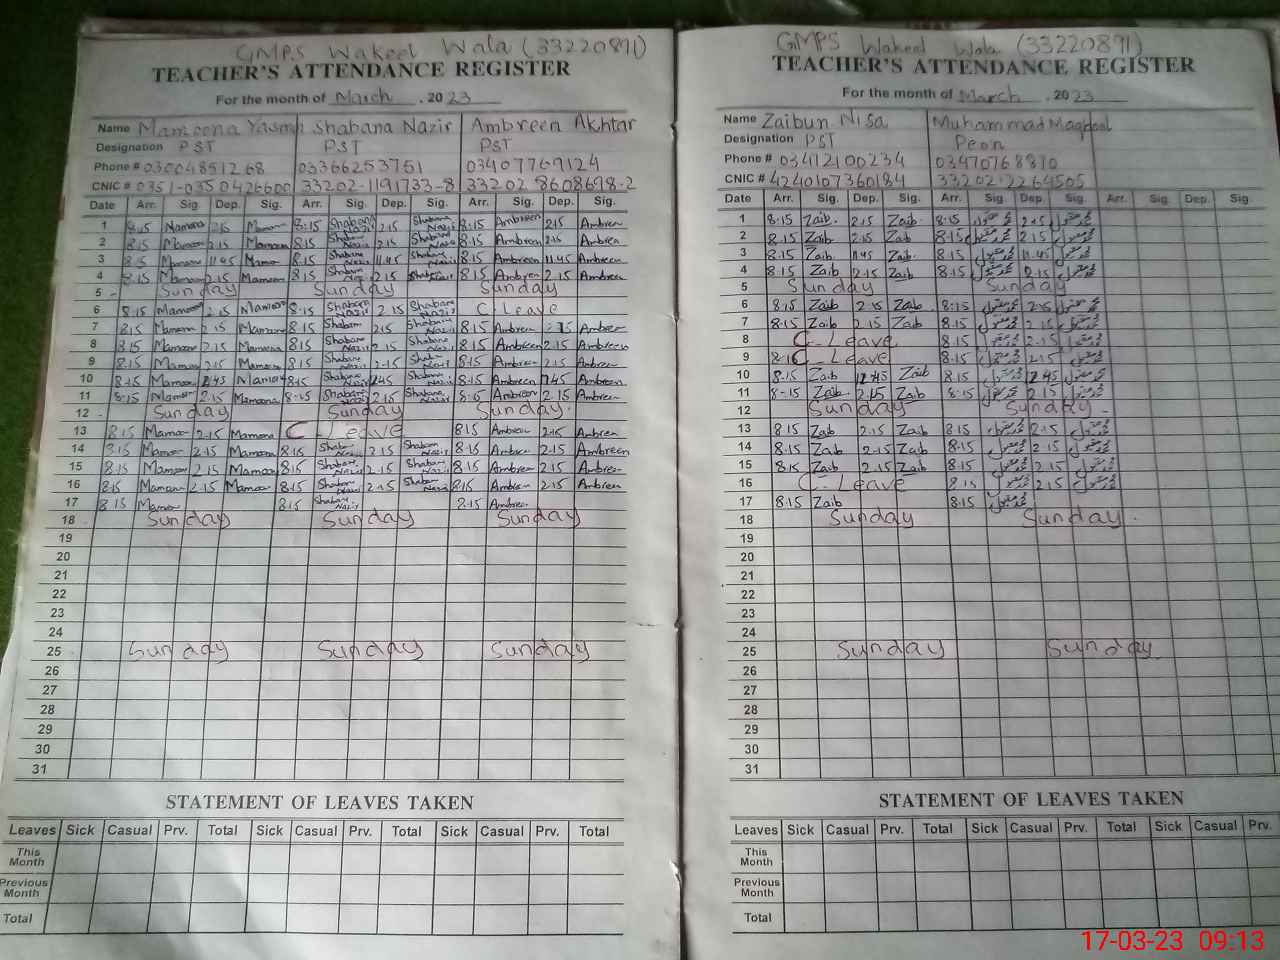 GMPS Wakeel Wala (33220891)
TEACHER'S ATTENDANCE REGISTER
For the month of March, 2023
Name Mamoona Yasmin Shabana Nazir Ambreen Akhtar
Designation PST PST PST
Phone # 03004851268 03366253751 03407769124
CNIC # 0351-0350426600 33202-1191733-8 33202 8608698-2
Date Arr. Sig. Dep. Sig. Arr. Sig. Dep. Sig. Arr. Sig. Dep. Sig.
1 8:15 Mamoona 2:15 Mamoon 8:15 Shabana Nazir 2:15 Shabana Nazir 8:15 Ambreen 2:15 Ambreen
2 8:15 Mamoon 2:15 Mamoon 8:15 Shabana Nazir 2:15 Shabana Nazir 8:15 Ambreen 2:15 Ambreen
3 8:15 Mamoon 11:45 Mamoon 8:15 Shabana Nazir 11:45 Shabana Nazir 8:15 Ambreen 11:45 Ambreen
4 8:15 Mamoon 2:15 Mamoon 8:15 Shabana Naz 2:15 Shabana 8:15 Ambreen 2:15 Ambreen
5 Sunday Sunday Sunday
6 8:15 Mamoon 2:15 Mamoon 8:15 Shabana Nazir 2:15 Shabana Nazir C. Leave
7 8:15 Mamoona 2:15 Mamoona 8:15 Shabana 2:15 Shabana Nazir 8:15 Ambreen 2:15 Ambreen
8 8:15 Mamoon 2:15 Mamoona 8:15 Shabana Nazir 2:15 Shabana Nazir 8:15 Ambreen 2:15 Ambreen
9 8:15 Mamoon 2:15 Mamoon 8:15 Shabana Nazir 2:15 Shabana Nazir 8:15 Ambreen 2:15 Ambreen
10 8:15 Mamoon 12:45 Mamoon 8:15 Shabana Nazir 12:45 Shabana Nazir 8:15 Ambreen 12:45 Ambreen
11 8:15 Mamoon 2:15 Mamoona 8:15 Shabana Nazir 2:15 Shabana Nazir 8:15 Ambreen 2:15 Ambreen
12 Sunday Sunday Sunday
13 8:15 Mamoon 2:15 Mamoona C. Leave 8:15 Ambreen 2:15 Ambreen
14 8:15 Mamoon 2:15 Mamoon 8:15 Shabana Nazir 2:15 Shabana Nazir 8:15 Ambreen 2:15 Ambreen
15 8:15 Mamoon 2:15 Mamoon 8:15 Shabana Nazir 2:15 Shabana Nazir 8:15 Ambreen 2:15 Ambreen
16 8:15 Mamoon 2:15 Mamoon 8:15 Shabana Nazir 2:15 Shabana Nazir 8:15 Ambreen 2:15 Ambreen
17 8:15 Mamoon 8:15 Shabana Nazir 8:15 Ambreen
18 Sunday Sunday Sunday
19
20
21
22
23
24
25 Sunday Sunday Sunday
26
27
28
29
30
31
STATEMENT OF LEAVES TAKEN
Leaves Sick Casual Prv. Total Sick Casual Prv. Total Sick Casual Prv. Total
This Month
Previous Month
Total
GMPS Wakeel Wala (33220891)
TEACHER'S ATTENDANCE REGISTER
For the month of March, 2023
Name Zaibun Nisa Muhammad Maqbool
Designation PST Peon
Phone # 03412100234 03470768810
CNIC # 4240107360184 33202-2264505
Date Arr. Sig. Dep. Sig. Arr. Sig. Dep. Sig. Arr. Sig. Dep. Sig.
1 8:15 Zaib 2:15 Zaib 8:15 محمد مقبول 2:15 محمد مقبول
2 8:15 Zaib 2:15 Zaib 8:15 محمد مقبول 2:15 محمد مقبول
3 8:15 Zaib 11:45 Zaib 8:15 محمد مقبول 11:45 محمد مقبول
4 8:15 Zaib 2:15 Zaib 8:15 محمد مقبول 2:15 محمد مقبول
5 Sunday Sunday
6 8:15 Zaib 2:15 Zaib 8:15 محمد مقبول 2:15 محمد مقبول
7 8:15 Zaib 2:15 Zaib 8:15 محمد مقبول 2:15 محمد مقبول
8 C. Leave 8:15 محمد مقبول 2:15 محمد مقبول
9 8:1 C. Leave 8:15 محمد مقبول 2:15 محمد مقبول
10 8:15 Zaib 12:45 Zaib 8:15 محمد مقبول 12:45 محمد مقبول
11 8:15 Zaib 2:15 Zaib 8:15 محمد مقبول 2:15 محمد مقبول
12 Sunday Sunday
13 8:15 Zaib 2:15 Zaib 8:15 محمد مقبول 2:15 محمد مقبول
14 8:15 Zaib 2:15 Zaib 8:15 محمد مقبول 2:15 محمد مقبول
15 8:15 Zaib 2:15 Zaib 8:15 محمد مقبول 2:15 محمد مقبول
16 C. Leave 8:15 محمد مقبول 2:15 محمد مقبول
17 8:15 Zaib 8:15 محمد مقبول
18 Sunday Sunday
19
20
21
22
23
24
25 Sunday Sunday
26
27
28
29
30
31
STATEMENT OF LEAVES TAKEN
Leaves Sick Casual Prv. Total Sick Casual Prv. Total Sick Casual Prv.
This Month
Previous Month
Total
17-03-23 09:13